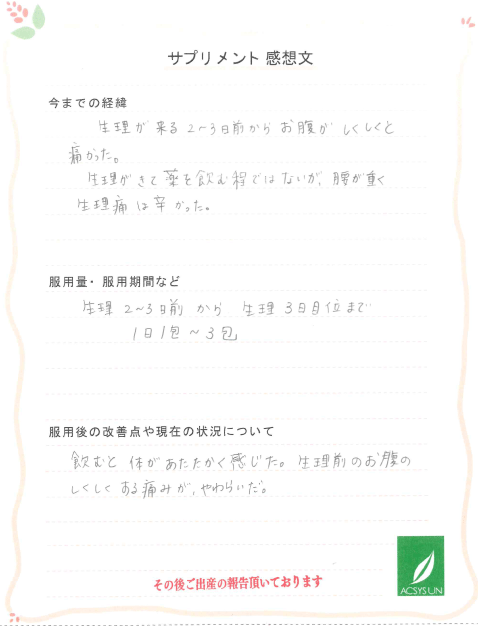 サプリメント 感想文
今までの経緯
生理が来る2〜3日前からお腹がしくしくと
痛かった。
生理がきて薬を飲む程ではないが、腰が重く
生理痛は辛かった。
服用量・服用期間など
生理2〜3日前から 生理3日目位まで
1日1包〜3包
服用後の改善点や現在の状況について
飲むと体があたたかく感じた。生理前のお腹の
しくしくする痛みが、やわらいだ。
その後ご出産の報告頂いております
ACSYSUN